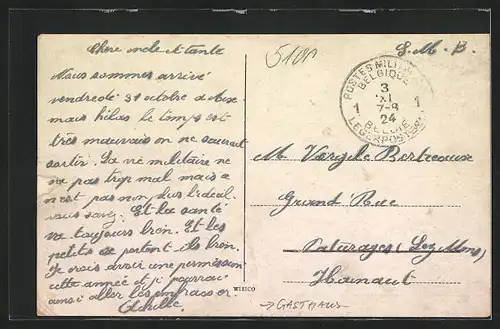 Chere oncle et tante
Nous sommes arrivé
vendredi 31 octobre à
mais hélas le temps est
très mauvais on ne saurait
sortir. La vie militaire ne
va pas trop mal mais
n'est pas non plus l'idéal
vous savez. Et la santé
va toujours bon. Et les
petits se portent-ils bon.
Je crois avoir une permission
cette année et je pourrai
ainsi aller les embrasser.
Achille
510A
S. M. B.
POSTES MILITAIRES
BELGIQUE
3
XI
1 7-8 1
24
BELGIE
LEGERPOSTERIJ
M Virgile
Grand' Rue
Paturages (Lez Mons)
Hainaut
WILCO
→ GASTHAUS